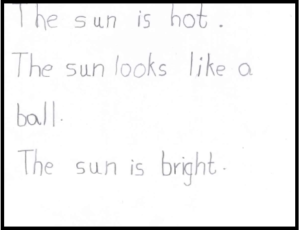 The sun is hot.
The sun looks like a
ball.
The sun is bright.